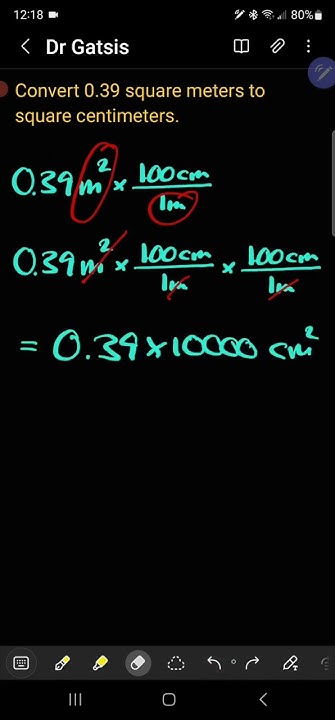 12:18 80%
Dr Gatsis
Convert 0.39 square meters to
square centimeters.
0.39 m² × 100cm / 1m
0.39 m² × 100cm / 1m × 100cm / 1m
= 0.39 × 10000 cm²